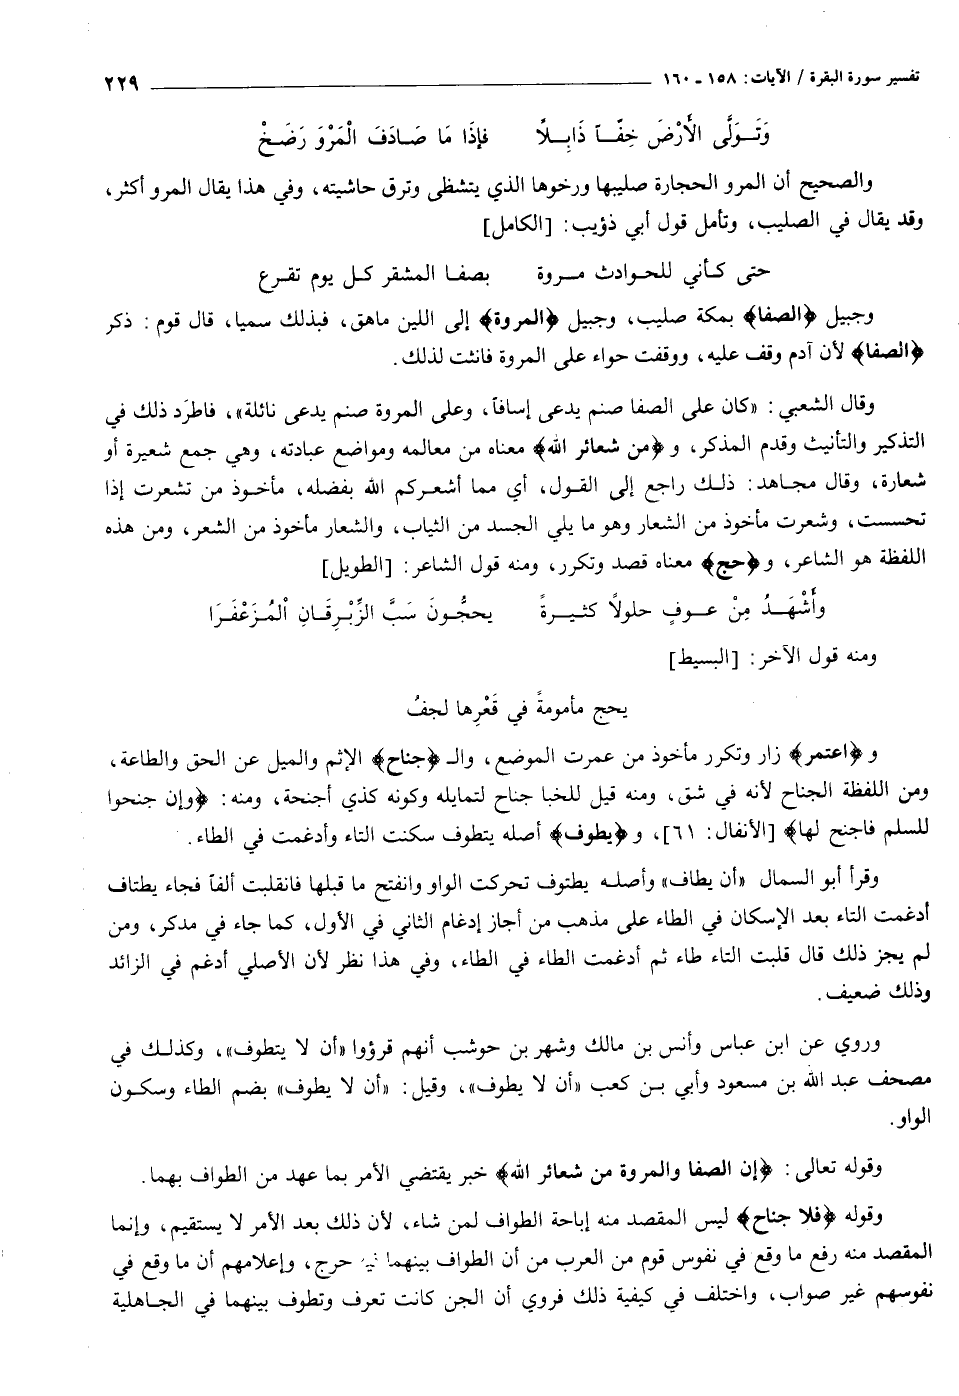 تفسير سورة البقرة / الآيات: ١٥٨ - ١٦٠ ٢٢٩
وَتَوَلَّى الأَرْضَ خِفّاً ذَابِلاً فإِذَا مَا صَادَفَ الْمَرْوَ رَضَخْ
والصحيح أن المرو الحجارة صليبها ورخوها الذي يتشظى وترق حاشيته، وفي هذا يقال المرو أكثر،
وقد يقال في الصليب، وتأمل قول أبي ذؤيب: [الكامل]
حتى كأني للحوادث مروة بصفا المشقر كل يوم تقرع
وجبيل ﴿الصفا﴾ بمكة صليب، وجبيل ﴿المروة﴾ إلى اللين ماهق، فبذلك سميا، قال قوم: ذكر
﴿الصفا﴾ لأن آدم وقف عليه، ووقفت حواء على المروة فانثت لذلك.
وقال الشعبي: «كان على الصفا صنم يدعى إسافاً، وعلى المروة صنم يدعى نائلة»، فاطرَد ذلك في
التذكير والتأنيث وقدم المذكر، و ﴿من شعائر الله﴾ معناه من معالمه ومواضع عبادته، وهي جمع شعيرة أو
شعارة، وقال مجاهد: ذلك راجع إلى القول، أي مما أشعركم الله بفضله، مأخوذ من تشعرت إذا
تحسست، وشعرت مأخوذ من الشعار وهو ما يلي الجسد من الثياب، والشعار مأخوذ من الشعر، ومن هذه
اللفظة هو الشاعر، و ﴿حج﴾ معناه قصد وتكرر، ومنه قول الشاعر: [الطويل]
وأَشْهَدُ مِنْ عوفٍ حلولاً كثيرةً يحجُّونَ سَبَّ الزِّبْرِقَانِ الْمُزَعْفَرَا
ومنه قول الآخر: [البسيط]
يحج مأمومةً في قَعْرِها لجفُ
و ﴿اعتمر﴾ زار وتكرر مأخوذ من عمرت الموضع، والـ ﴿جناح﴾ الإثم والميل عن الحق والطاعة،
ومن اللفظة الجناح لأنه في شق، ومنه قيل للخبا جناح لتمايله وكونه كذي أجنحة، ومنه: ﴿وإن جنحوا
للسلم فاجنح لها﴾ [الأنفال: ٦١]، و ﴿يطوف﴾ أصله يتطوف سكنت التاء وأدغمت في الطاء.
وقرأ أبو السمال «أن يطاف» وأصله يطتوف تحركت الواو وانفتح ما قبلها فانقلبت ألفاً فجاء يطتاف
أدغمت التاء بعد الإسكان في الطاء على مذهب من أجاز إدغام الثاني في الأول، كما جاء في مدكر، ومن
لم يجز ذلك قال قلبت التاء طاء ثم أدغمت الطاء في الطاء، وفي هذا نظر لأن الأصلي أدغم في الزائد
وذلك ضعيف.
وروي عن ابن عباس وأنس بن مالك وشهر بن حوشب أنهم قرؤوا «أن لا يتطوف»، وكذلك في
مصحف عبد الله بن مسعود وأبي بن كعب «أن لا يطوف»، وقيل: «أن لا يطوف» بضم الطاء وسكون
الواو.
وقوله تعالى: ﴿إن الصفا والمروة من شعائر الله﴾ خبر يقتضي الأمر بما عهد من الطواف بهما.
وقوله ﴿فلا جناح﴾ ليس المقصد منه إباحة الطواف لمن شاء، لأن ذلك بعد الأمر لا يستقيم، وإنما
المقصد منه رفع ما وقع في نفوس قوم من العرب من أن الطواف بينهما حرج، وإعلامهم أن ما وقع في
نفوسهم غير صواب، واختلف في كيفية ذلك فروي أن الجن كانت تعرف وتطوف بينهما في الجاهلية